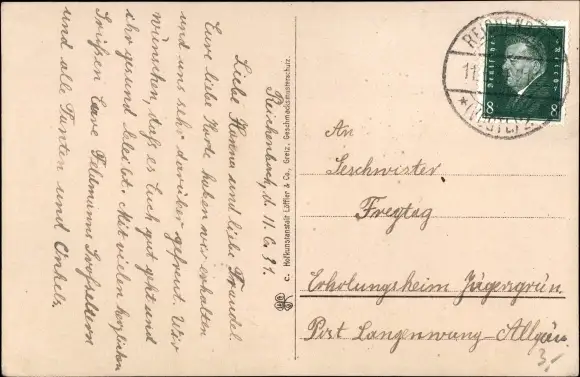 Reichenbach, d. 11.6.31.
Liebe Hanna und liebe Traudel.
Eure liebe Karte haben wir erhalten
und uns sehr darüber gefreut. Wir
wünschen, daß es Euch gut geht und
ihr gesund bleibt. Mit vielen herzlichen
Grüßen Eure Feldmanns Großeltern
und alle Tanten und Onkels.
C. Hofkunstanstalt Löffler & Co., Greiz. Geschmacksmusterschutz.
REICHENB
11.
*(VOGTL)
Deutsches Reich
8 8
An
Geschwister
Freytag
Erholungsheim Jägersgrün
Post Langenwang-Allgäu.
3,-